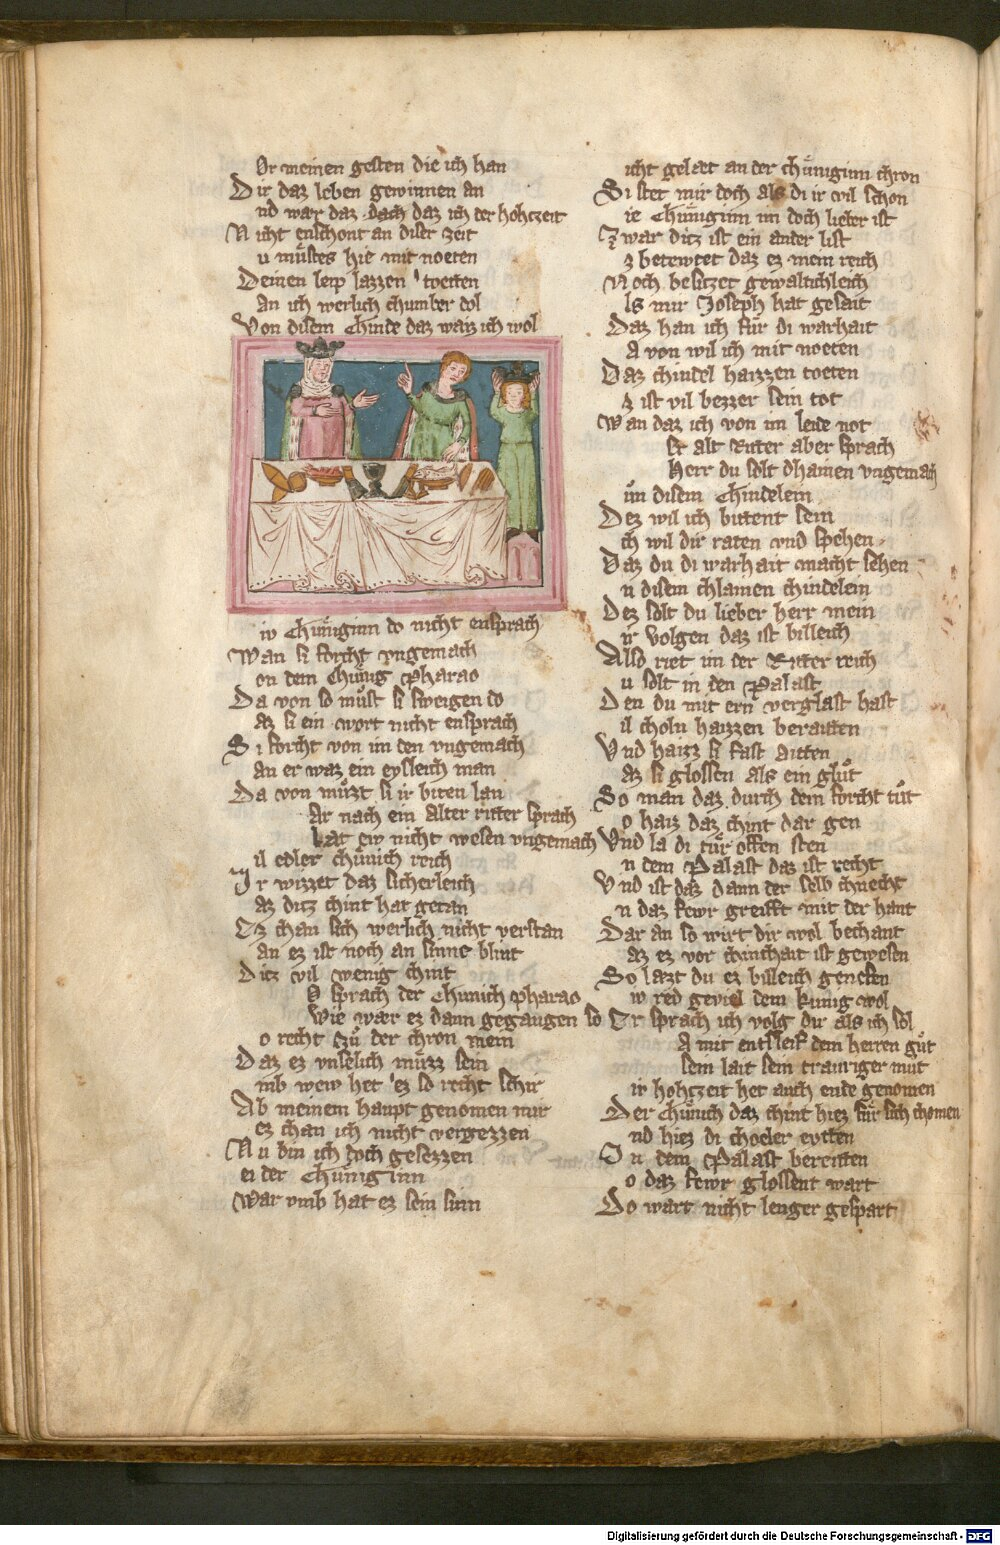 Or meinen gesten die ich han
Dir daz leben gewinnen an
nd wær daz dach daz ich der hohczeit
Nicht enschont an diser zeit
u můstes hie mit noeten
Deinen leip lazzen toetten
an ich werlich chumber dol
Von disem Chinde daz waiz ich wol
iv Chůniginn do nicht ensprach
Wan si forcht vngemach
on dem Chůnig Pharao
Da von so můst si sweigen do
az si ein wort nicht ensprach
Si forcht von im den vngemach
an er waz ein eysleich man
Da von můzt si ir biten lan
Ar nach ein alter ritter sprach
Lat ew nicht wesen vngemach
il edler chůnich reich
Ir wizzet daz sicherleich
az ditz chint hat getan
Ez chan sich werlich nicht verstan
an ez ist noch an sinne blint
Ditz vil wenig chint
O sprach der Chunich Pharao
Wie wær ez dann gegangen so
o recht zů der chron mein
Daz ez vnselich můzz sein
mb wew het ez so recht schir
Ab meinem haupt genomen mir
ez chan ich nicht vergezzen
Nu bin ich doch gesezzen
ei der Chůniginn
War vmb hat ez sein sinn
icht gelæt an der chůniginn chron
Si stet mir doch als di ir vil schon
ie Chůniginn im doch lieber ist
Zwar ditz ist ein ander list
z betewtet daz ez mein reich
Noch besitzet gewaltichleich
ls mir Joseph hat gesait
Daz han ich für di warhait
A von wil ich mit noeten
Daz chindel haizzen toeten
z ist vil bezzer sein tot
Wan daz ich von im leide not
er alt Ritter aber sprach
Herr du solt dhainen vngemach
ůn disem Chindelein
Dez wil ich bittent sein
ch wil dir raten vnd spehen
Daz du di warhait macht sehen
n disem chlainen chindelein
Dez solt du lieber herr mein
ir volgen daz ist billeich
Also riet im der Ritter reich
u solt in den Palast
Den du mit ern verglast hast
il choln haizzen beraitten
Vnd haizz si fast aitten
az si glossen als ein glůt
So man daz durch dem forcht tůt
o haiz daz chint dar gen
Vnd la di tůr offen sten
n dem Palast daz ist recht
Vnd ist daz dann der selb chnecht
n daz fewr greifft mit der hant
Dar an so wirt dir wol bechant
az ez vor chinthait ist gewesen
So lazt du ez billeich genesen
iv red geviel dem kunig wol
Er sprach ich volg dir als ich sol
A mit entsleif dem herren gůt
Sein lait sein trauriger můt
ir hohczeit het auch ende genomen
Der Chůnich daz chint hiez für sich chomen
nd hiez di choeler eytten
In dem Palast bereitten
o daz fewr glossent wart
Do wart nicht lenger gespart
Digitalisierung gefördert durch die Deutsche Forschungsgemeinschaft - DFG